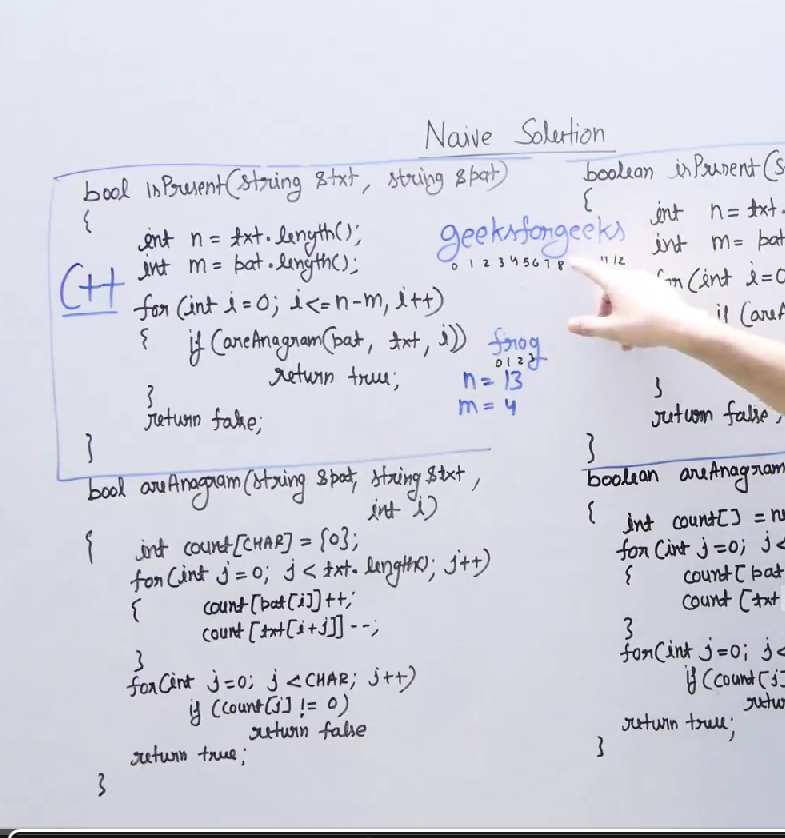 Naive Solution
bool isPresent(string &txt, string &pat)
{
int n = txt.length();
int m = pat.length();
C++
for (int i=0; i<=n-m, i++)
{ if (areAnagram(pat, txt, i))
return true;
}
return false;
}
geeksforgeeks
0 1 2 3 4 5 6 7 8 11 12
frog
0 1 2 3
n = 13
m = 4
bool areAnagram(string &pat, string &txt,
int i)
{ int count[CHAR] = {0};
for (int j=0; j < txt. length(); j++)
{ count[pat[i]]++;
count [txt[i+j]]--;
}
for (int j=0; j < CHAR; j++)
if (count[j] != 0)
return false
return true;
}
boolean isPresent(S
{
int n = txt.
int m = pat
for (int i=0
if (areA
}
return false;
}
boolean areAnagram
{ int count[] = n
for (int j=0; j<
{ count[pat
count [txt
}
for (int j=0; j<
if (count[j]
retu
return true;
}